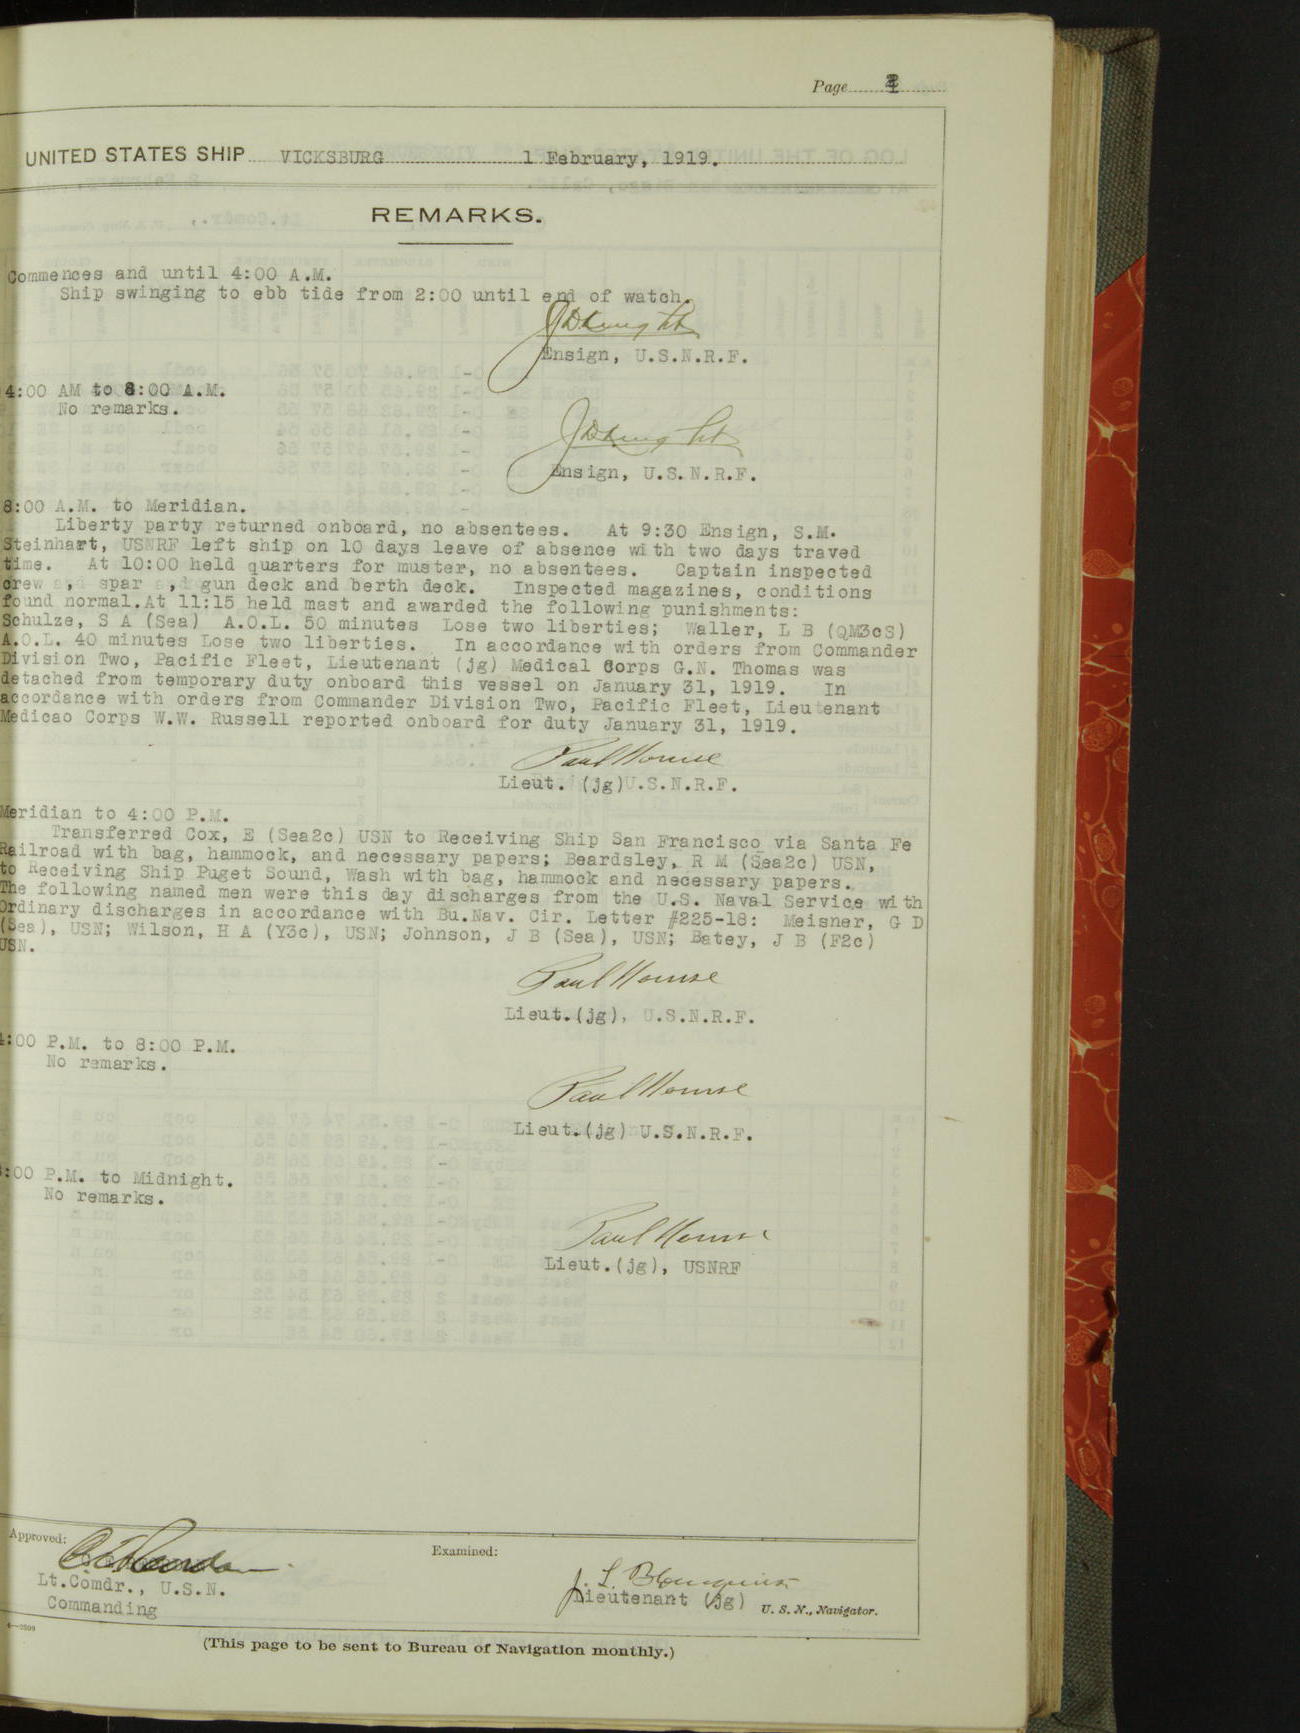 Page
UNITED STATES SHIP VICKSBURG 1 February, 1919.
REMARKS.
Commences and until 4:00 A.M.
Ship swinging to ebb tide from 2:00 until end of watch.
Ensign, U.S.N.R.F.
4:00 AM to 8:00 A.M.
No remarks.
Ensign, U.S.N.R.F.
8:00 A.M. to Meridian.
Liberty party returned onboard, no absentees. At 9:30 Ensign, S.M.
Steinhart, USNRF left ship on 10 days leave of absence with two days traved
time. At 10:00 held quarters for muster, no absentees. Captain inspected
crew , spar , gun deck and berth deck. Inspected magazines, conditions
found normal.At 11:15 held mast and awarded the following punishments:
Schulze, S A (Sea) A.O.L. 50 minutes Lose two liberties; Waller, L B (QM3cS)
A.O.L. 40 minutes Lose two liberties. In accordance with orders from Commander
Division Two, Pacific Fleet, Lieutenant (jg) Medical Corps G.N. Thomas was
detached from temporary duty onboard this vessel on January 31, 1919. In
accordance with orders from Commander Division Two, Pacific Fleet, Lieutenant
Medicao Corps W.W. Russell reported onboard for duty January 31, 1919.
Lieut. (jg)U.S.N.R.F.
Meridian to 4:00 P.M.
Transferred Cox, E (Sea2c) USN to Receiving Ship San Francisco via Santa Fe
Railroad with bag, hammock, and necessary papers; Beardsley, R M (Sea2c) USN,
to Receiving Ship Puget Sound, Wash with bag, hammock and necessary papers.
The following named men were this day discharges from the U.S. Naval Service with
Ordinary discharges in accordance with Bu.Nav. Cir. Letter #225-18: Meisner, G D
(Sea), USN; Wilson, H A (Y3c), USN; Johnson, J B (Sea), USN; Batey, J B (F2c)
USN.
Lieut.(jg), U.S.N.R.F.
4:00 P.M. to 8:00 P.M.
No remarks.
Lieut.(jg) U.S.N.R.F.
:00 P.M. to Midnight.
No remarks.
Lieut.(jg), USNRF
Approved:
Examined:
Lt.Comdr., U.S.N.
Commanding
Lieutenant (jg) U. S. N., Navigator.
(This page to be sent to Bureau of Navigation monthly.)